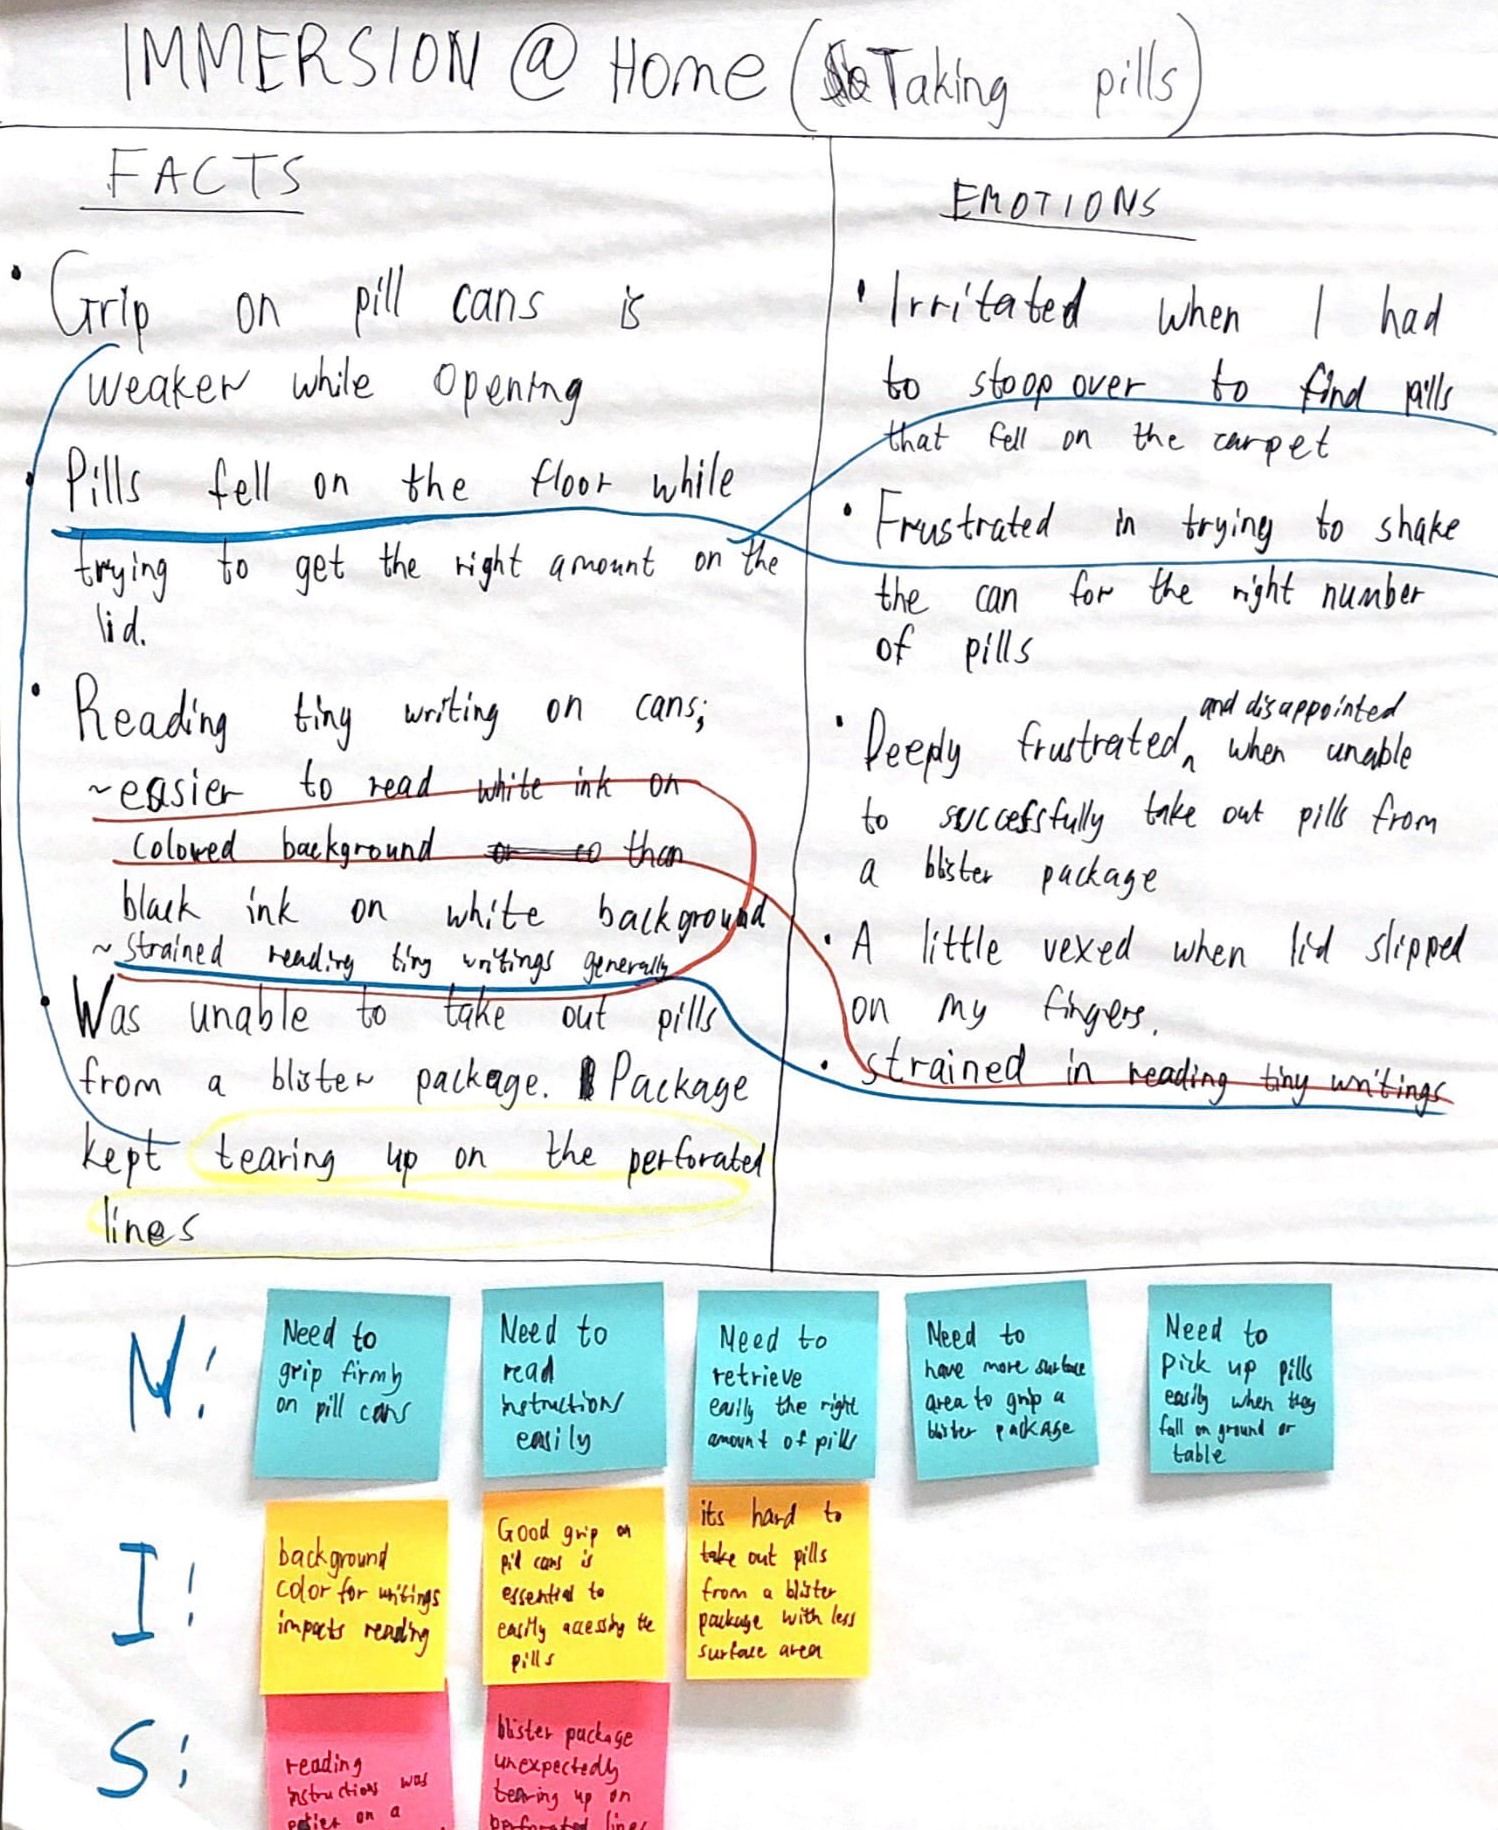 IMMERSION @ Home (Taking pills)
FACTS
• Grip on pill cans is
weaker while opening
• Pills fell on the floor while
trying to get the right amount on the
lid.
• Reading tiny writing on cans;
~easier to read white ink on
colored background than
black ink on white background
~ strained reading tiny writings generally
• Was unable to take out pills
from a blister package. Package
kept tearing up on the perforated
lines
EMOTIONS
• Irritated when I had
to stoop over to find pills
that fell on the carpet
• Frustrated in trying to shake
the can for the right number
of pills
• Deeply frustrated and disappointed when unable
to successfully take out pills from
a blister package
• A little vexed when lid slipped
on my fingers.
• strained in reading tiny writings
N:
Need to
grip firmly
on pill cans
Need to
read
instructions
easily
Need to
retrieve
easily the right
amount of pills
Need to
have more surface
area to grip a
blister package
Need to
pick up pills
easily when they
fall on ground or
table
I:
background
color for writings
impacts reading
Good grip on
pill cans is
essential to
easily accessing the
pills
its hard to
take out pills
from a blister
package with less
surface area
S:
reading
instructions was
easier on a
blister package
unexpectedly
tearing up on
perforated lines